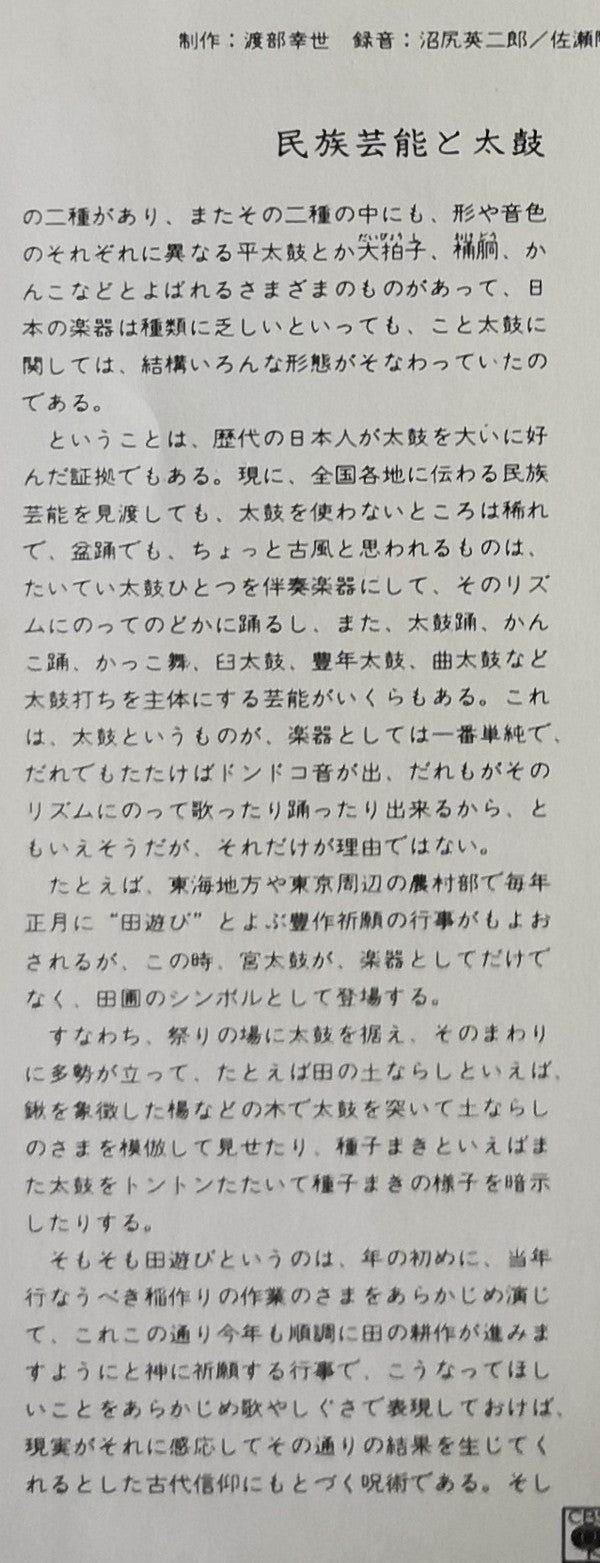 制作：渡部幸世　録音：沼尻英二郎／佐瀬
民族芸能と太鼓
の二種があり、またその二種の中にも、形や音色
のそれぞれに異なる平太鼓とか大拍子、桶胴、か
んこなどとよばれるさまざまのものがあって、日
本の楽器は種類に乏しいといっても、こと太鼓に
関しては、結構いろんな形態がそなわっていたの
である。
　ということは、歴代の日本人が太鼓を大いに好
んだ証拠でもある。現に、全国各地に伝わる民族
芸能を見渡しても、太鼓を使わないところは稀れ
で、盆踊でも、ちょっと古風と思われるものは、
たいてい太鼓ひとつを伴奏楽器にして、そのリズ
ムにのってのどかに踊るし、また、太鼓踊、かん
こ踊、かっこ舞、臼太鼓、豊年太鼓、曲太鼓など
太鼓打ちを主体にする芸能がいくらもある。これ
は、太鼓というものが、楽器としては一番単純で、
だれでもたたけばドンドコ音が出、だれもがその
リズムにのって歌ったり踊ったり出来るから、と
もいえそうだが、それだけが理由ではない。
　たとえば、東海地方や東京周辺の農村部で毎年
正月に“田遊び”とよぶ豊作祈願の行事がもよお
されるが、この時、宮太鼓が、楽器としてだけで
なく、田圃のシンボルとして登場する。
　すなわち、祭りの場に太鼓を据え、そのまわり
に多勢が立って、たとえば田の土ならしといえば、
鍬を象徴した楊などの木で太鼓を突いて土ならし
のさまを模倣して見せたり、種子まきといえばま
た太鼓をトントンたたいて種子まきの様子を暗示
したりする。
　そもそも田遊びというのは、年の初めに、当年
行なうべき稲作りの作業のさまをあらかじめ演じ
て、これこの通り今年も順調に田の耕作が進みま
すようにと神に祈願する行事で、こうなってほし
いことをあらかじめ歌やしぐさで表現しておけば、
現実がそれに感応してその通りの結果を生じてく
れるとした古代信仰にもとづく呪術である。そし
CBS